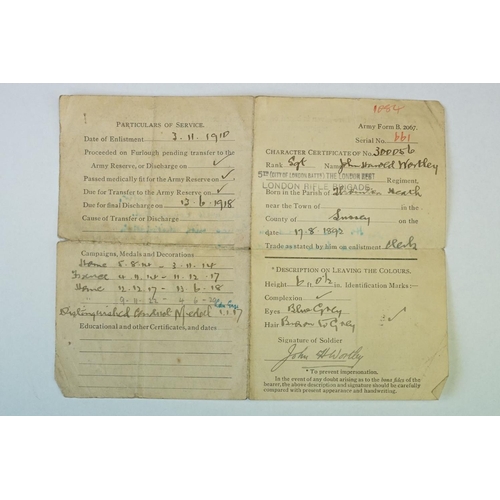 PARTICULARS OF SERVICE.
Date of Enlistment 3.11.1910
Proceeded on Furlough pending transfer to the
Army Reserve, or Discharge on ✓
Passed medically fit for the Army Reserve on ✓
Due for Transfer to the Army Reserve on ✓
Due for final Discharge on 13.6.1918
Cause of Transfer or Discharge
Campaigns, Medals and Decorations
Home 5.8.14 - 3.11.14
France 4.11.14 - 11.12.17
Home 12.12.17 - 13.6.18
Distinguished Conduct Medal
Educational and other Certificates, and dates
1084
Army Form B. 2067.
Serial No. 661
CHARACTER CERTIFICATE OF No. 300056
Rank Sgt Name John Harold Wortley
5TH (CITY OF LONDON BATTN) THE LONDON REGT Regiment.
LONDON RIFLE BRIGADE
Born in the Parish of Heath
near the Town of in the
County of Sussey on the
date 17.8.1892
Trade as stated by him on enlistment Clerk
* DESCRIPTION ON LEAVING THE COLOURS.
Height 6 ft 0½ in. Identification Marks:—
Complexion ✓
Eyes Blue Grey
Hair Brown to Grey
Signature of Soldier
John H Wortley
* To prevent impersonation.
In the event of any doubt arising as to the bona fides of the
bearer, the above description and signature should be carefully
compared with present appearance and handwriting.